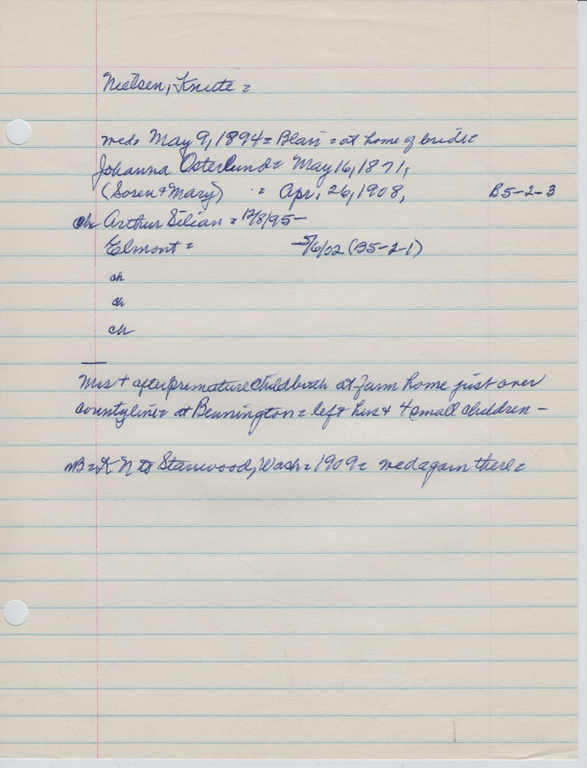 Nielsen, Knute =
wed= May 9, 1894 = Blair = at home of bride =
Johanna Osterlund = May 16, 1871,
(Soren + Mary) " = Apr, 26, 1908, B5-2-3
ch Arthur Silian = 12/8/95-
Elmont = 5/6/02 (B5-2-1)
ch
ch
ch
Mrs + after premature childbirth at farm home just over
county line = at Bennington = left hus + 4 small children -
= K N to Stanwood, Wash = 1909 = wed again there =